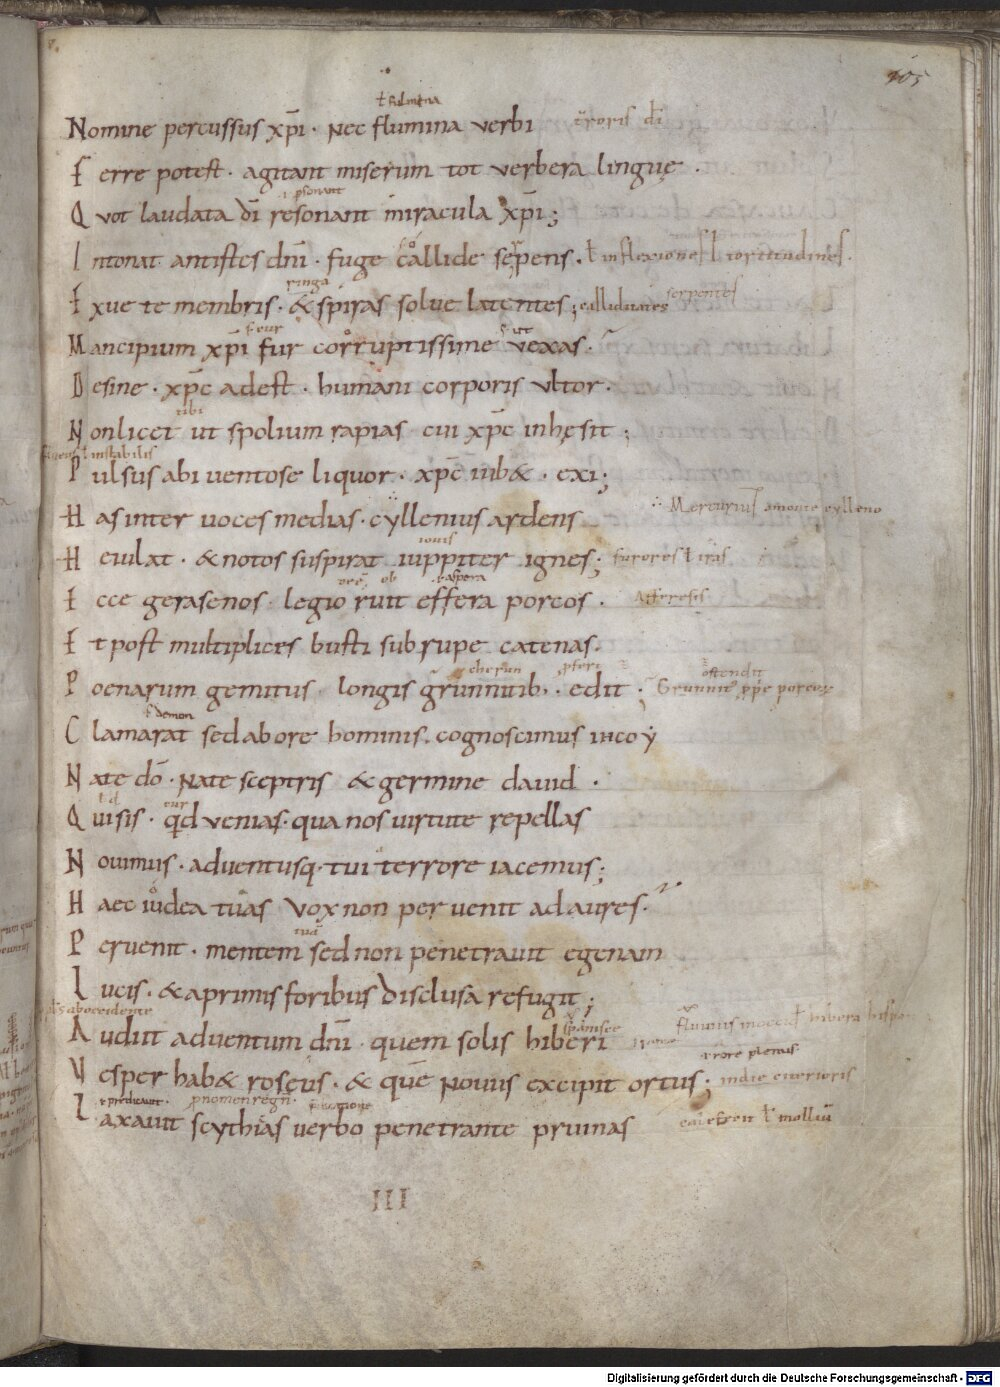 105
ł fulmina
Nomine percussus xp̄i · Nec flumina verbi
erroris
Ferre potest · agitant miserum tot verbera linguę ·
Qvot laudata dī resonant miracula xp̄i;
Intonat antistes dn̄i · fuge callide serpens · ł inflexiones ł tortitudines ·
Exue te membris · & spiras solve latentes; calliditates serpentes
Mancipium xp̄i fur corruptissime vexas ·
Desine · xp̄c adest · humani corporis vltor ·
tibi
Nonlicet ut spolium rapias cui xp̄c inhęsit ;
ł instabilis
Pulsus abi ventose liquor · xp̄c iub& · exi;
Has inter uoces medias · cyllenius ardens Mercurius amonte cylleno
iouis
Heiulat · & notos suspirat iuppiter ignes; furores ł iras
ob aspera
Ecce gerasenos · legio ruit effera porcos · Afferesis
Et post multiplices busti sub rupe catenas ·
ostendit
Poenarum gemitus · longis grunnitib · edit ; Grunnit ppe porcus
demon
Clamarat sed ab ore hominis · cognoscimus incoy
Nate dō · Nate sceptris & germine dauid ·
cur
Quisis · qd venias · qua nos uirtute repellas
Nouimus · adventusq · tui terrore iacemus;
Haec iudea tuas vox non per uenit ad aures ·
tuā
Peruenit · mentem sed non penetrauit egenam
Lucis · & a primis foribus disclusa refugit ;
ab occidente
Audiit adventum dn̄i · quem solis hiberi
rore plenus
Vesper hab& roseus · & quē Novus excipit ortus ; indie exterioris
p nomen regn
Laxauit scythias verbo penetrante pruinas
III
Digitalisierung gefördert durch die Deutsche Forschungsgemeinschaft - DFG